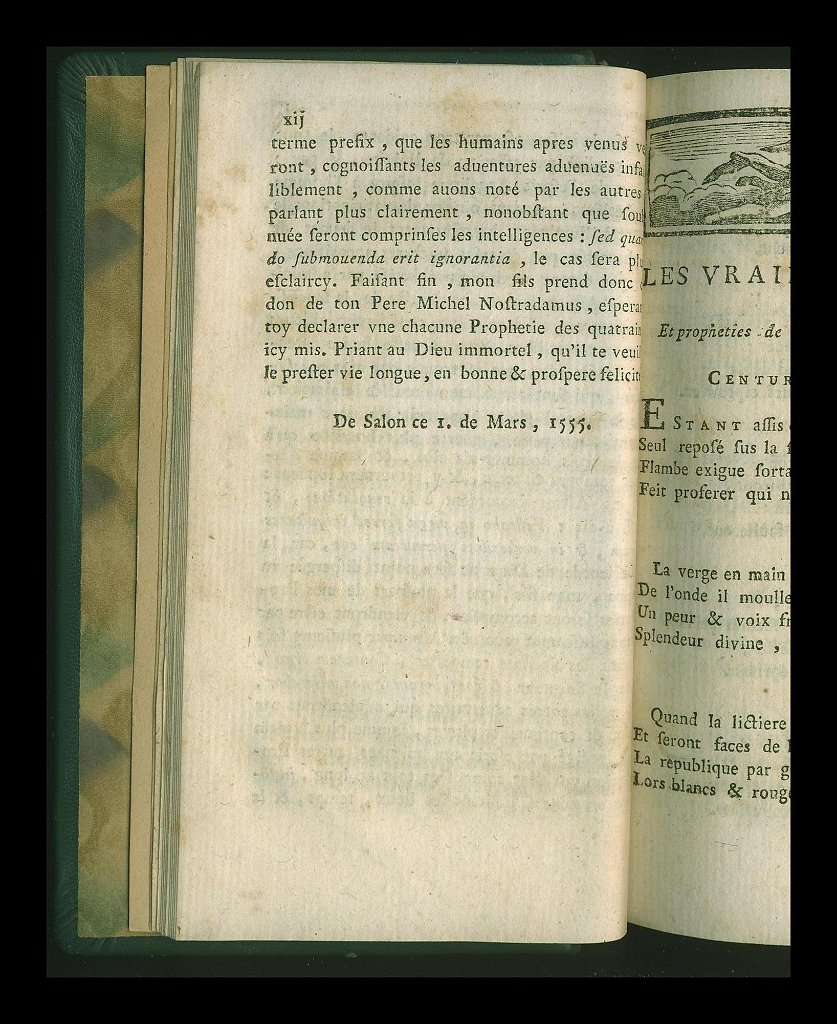 xij
terme prefix , que les humains apres venus ve
ront , cognoiſſants les aduentures aduenuës infa
liblement , comme auons noté par les autres
parlant plus clairement , nonobſtant que ſou
nuée ſeront comprinſes les intelligences : ſed qua
do ſubmouenda erit ignorantia , le cas ſera pl
eſclaircy. Faiſant fin , mon fils prend donc
don de ton Pere Michel Noſtradamus , eſpera
toy declarer vne chacune Prophetie des quatrai
icy mis. Priant au Dieu immortel , qu'il te veui
le preſter vie longue, en bonne & proſpere felicit
De Salon ce 1. de Mars , 1555.
LES VRAI
Et propheties de
CENTUR
ESTANT aſſis
Seul repoſé ſus la
Flambe exigue ſorta
Feit proferer qui n
La verge en main
De l'onde il moulle
Un peur & voix fr
Splendeur divine ,
Quand la lictiere
Et ſeront faces de
La republique par g
Lors blancs & rouge